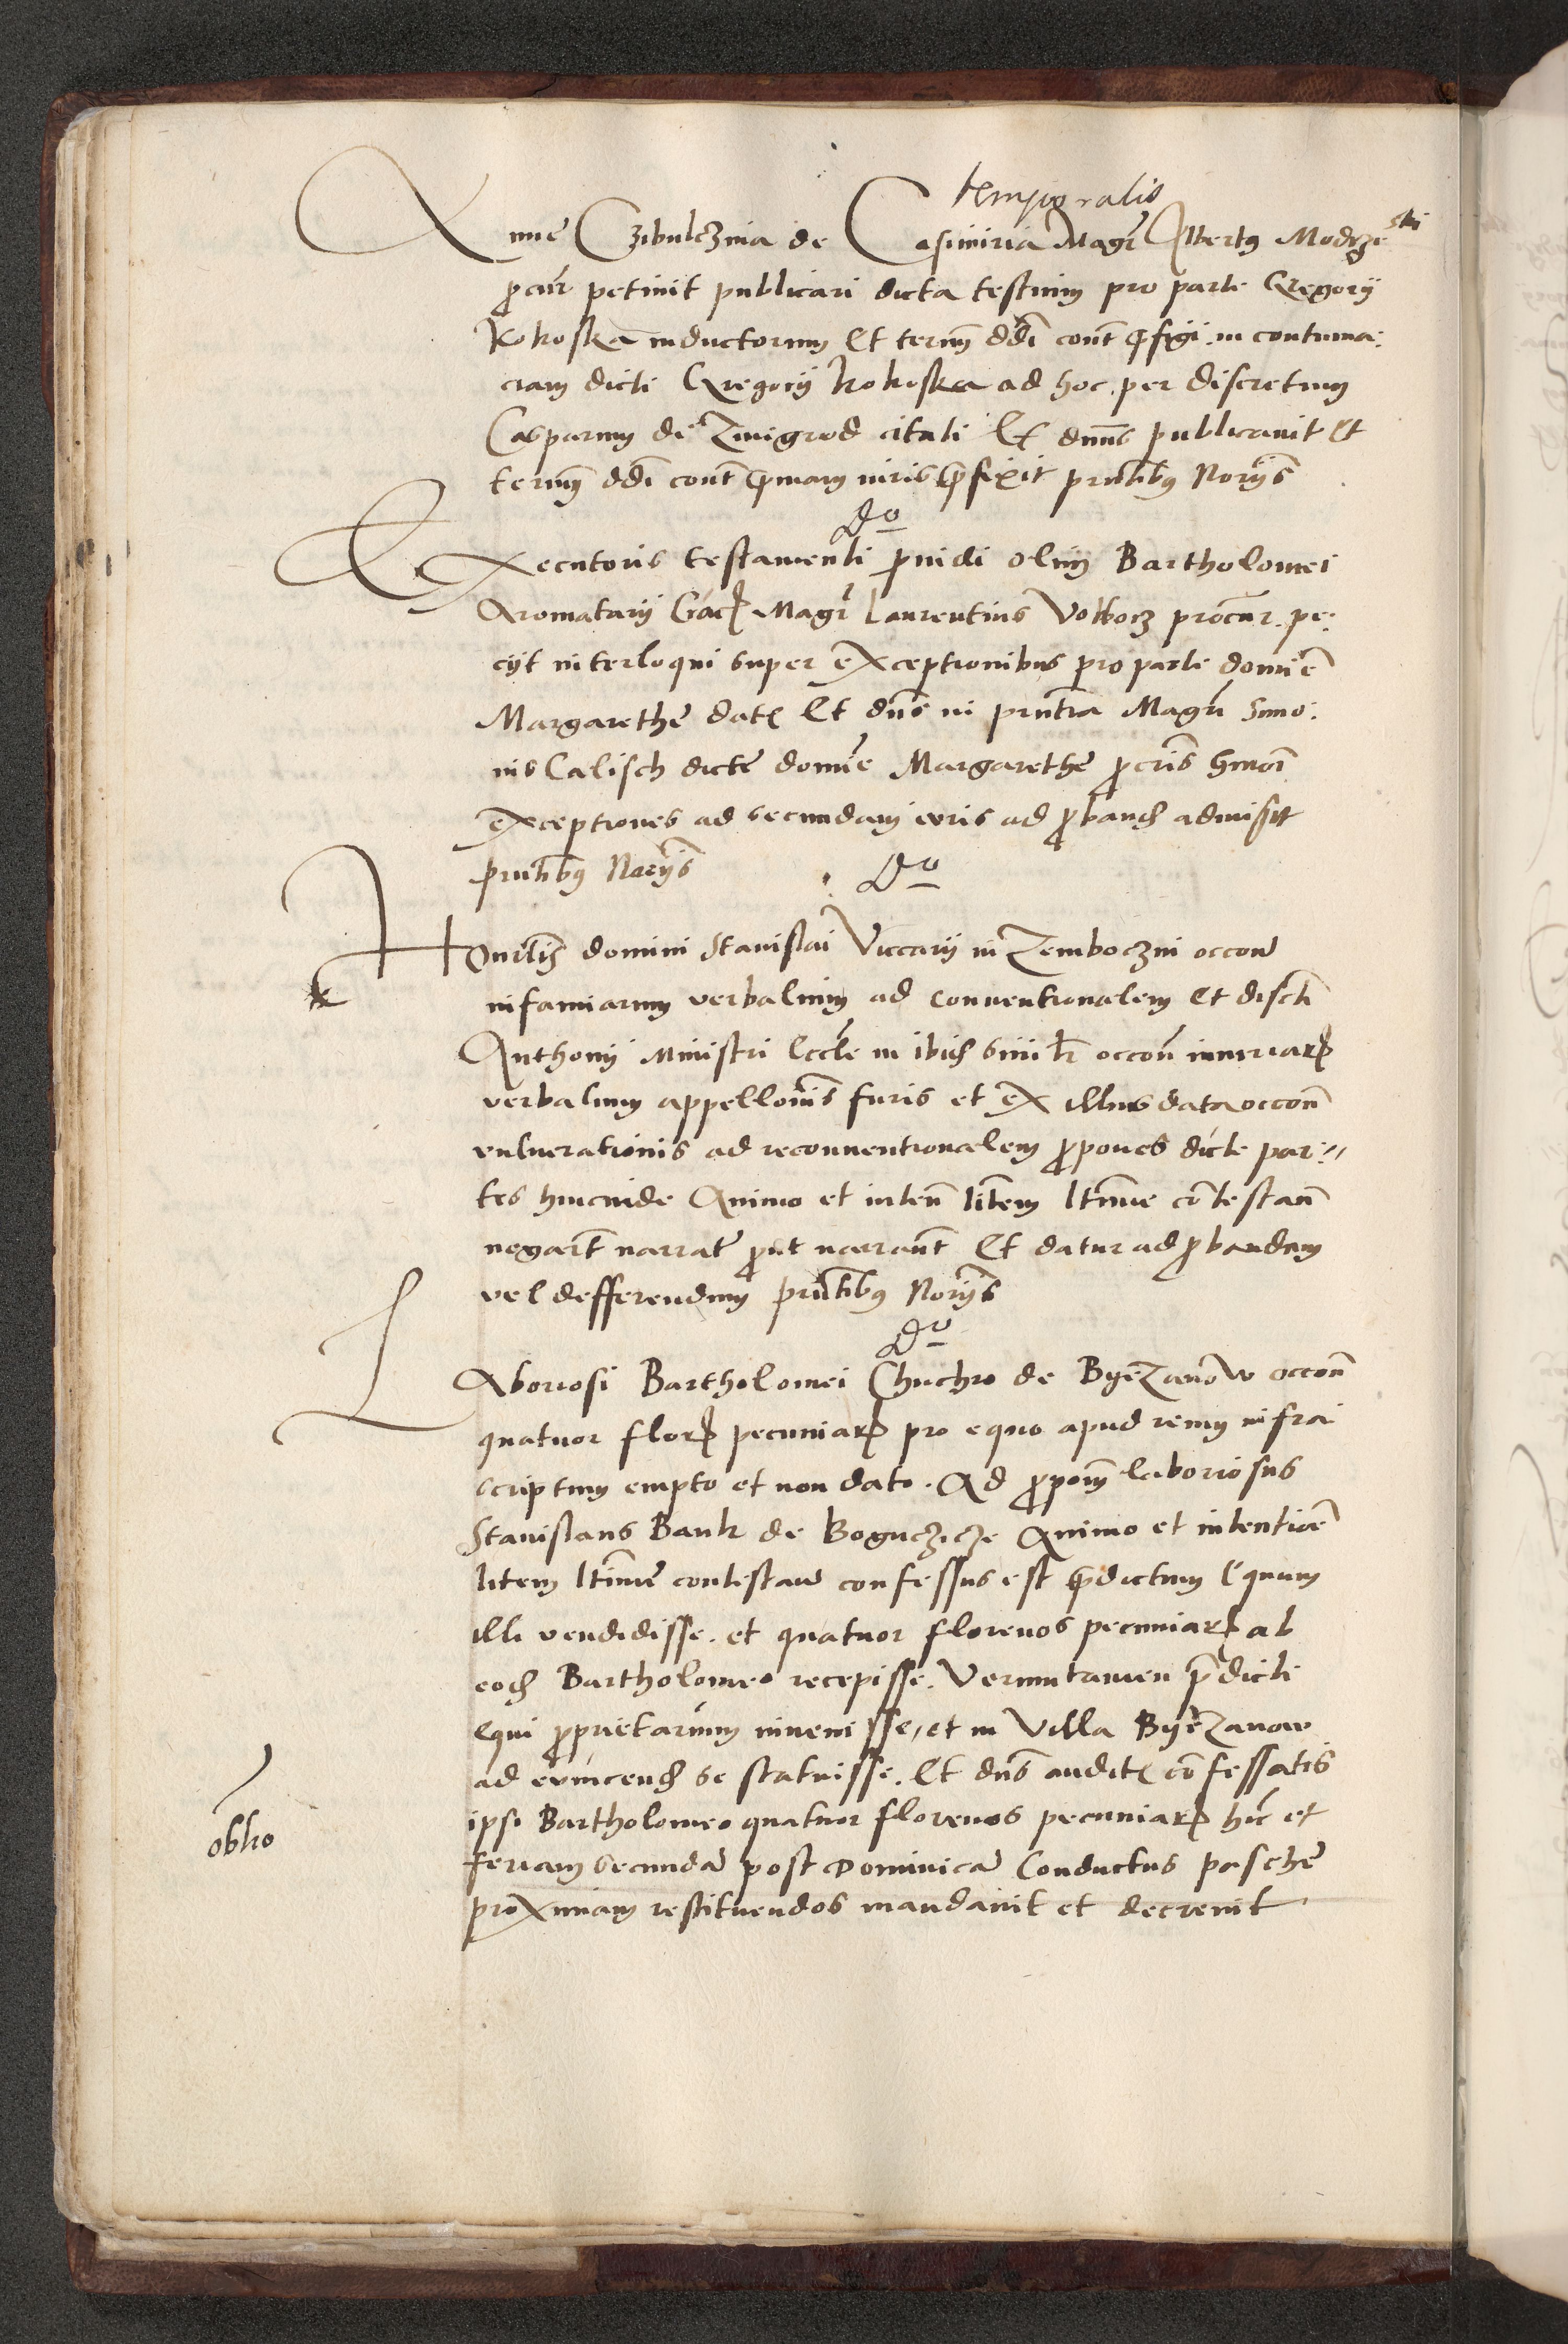 temporalis
Anne Czibulczina de Casimiria Magr Albertus Modrzeski
procur petiuit publicari dicta testium pro parte Gregorij
Kokoska inductorum Et termin ddi cont prefigi in contuma:
ciam dicti Gregorij Kokoska ad hoc per discretum
Casparum de Zmigrod citati Et dnus publicauit et
termin ddi cont primam iuris prefixit pntibus Norijs
Do
Executoris testamenti prouidi olim Bartholomei
Aromatarij Crac Magr Laurentius Wolborz procur. pe:
cijt interloqui super exceptionibus pro parte domine
Margarethe dat Et dns in pntia Magri Simo:
nis Calisch dicte domine Margarethe procris hmoi
exceptiones ad secundam iuris ad proband admisit
pntibus Norijs
Do
Honrlis domini Stanislai Viccarij in Zemboczin occone
infamiarum verbalium ad conuentionalem Et discti
Anthonij Ministri Eccle in ibid similr occon iniuriar
verbalium appellonis furis et ex illius data occon
vulnerationis ad reconuentionalem propones dicte par:
tes hincinde Animo et inten litem ltime contestan
negarnt narrata prout narrant Et datur ad probandum
vel defferendum pntibus Norijs
Do
Laboriosi Bartholomei Chuchro de Byezanow occon
quatuor flor pecuniar pro equo apud reum infra
scriptum empto et non dato. Ad propom laboriosus
Stanislaus Bank de Boguczicze Animo et intentione
litem ltime contestan confessus est predictum Equum
illi vendidisse. et quatuor florenos pecuniar ab
eod Bartholomeo recepisse. Verumtamen predicti
Equi proprietarium inuenisse, et in Villa Byezanow
ad euincend se statuisse. Et dns audit confessatis
ipsi Bartholomeo quatuor florenos pecuniar hinc et
feriam secunda post Dominica Conductus pasche
proximam restituendos mandauit et decreuit
oblio